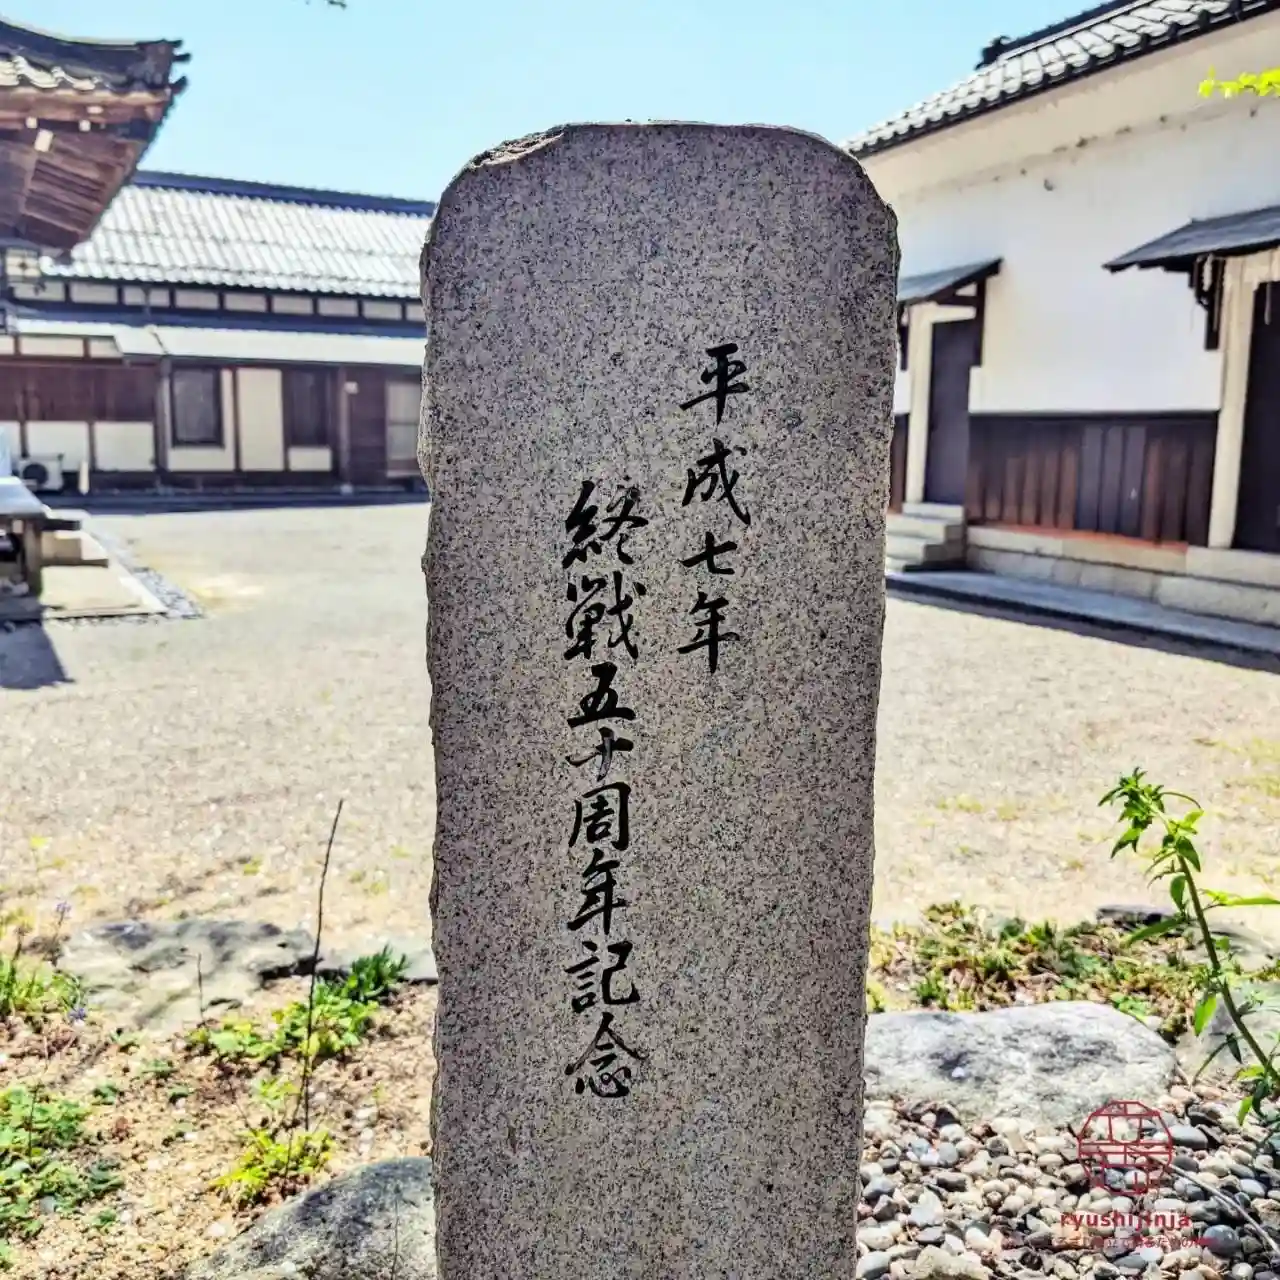 平成七年
終戦五十周年記念
ryushijinja